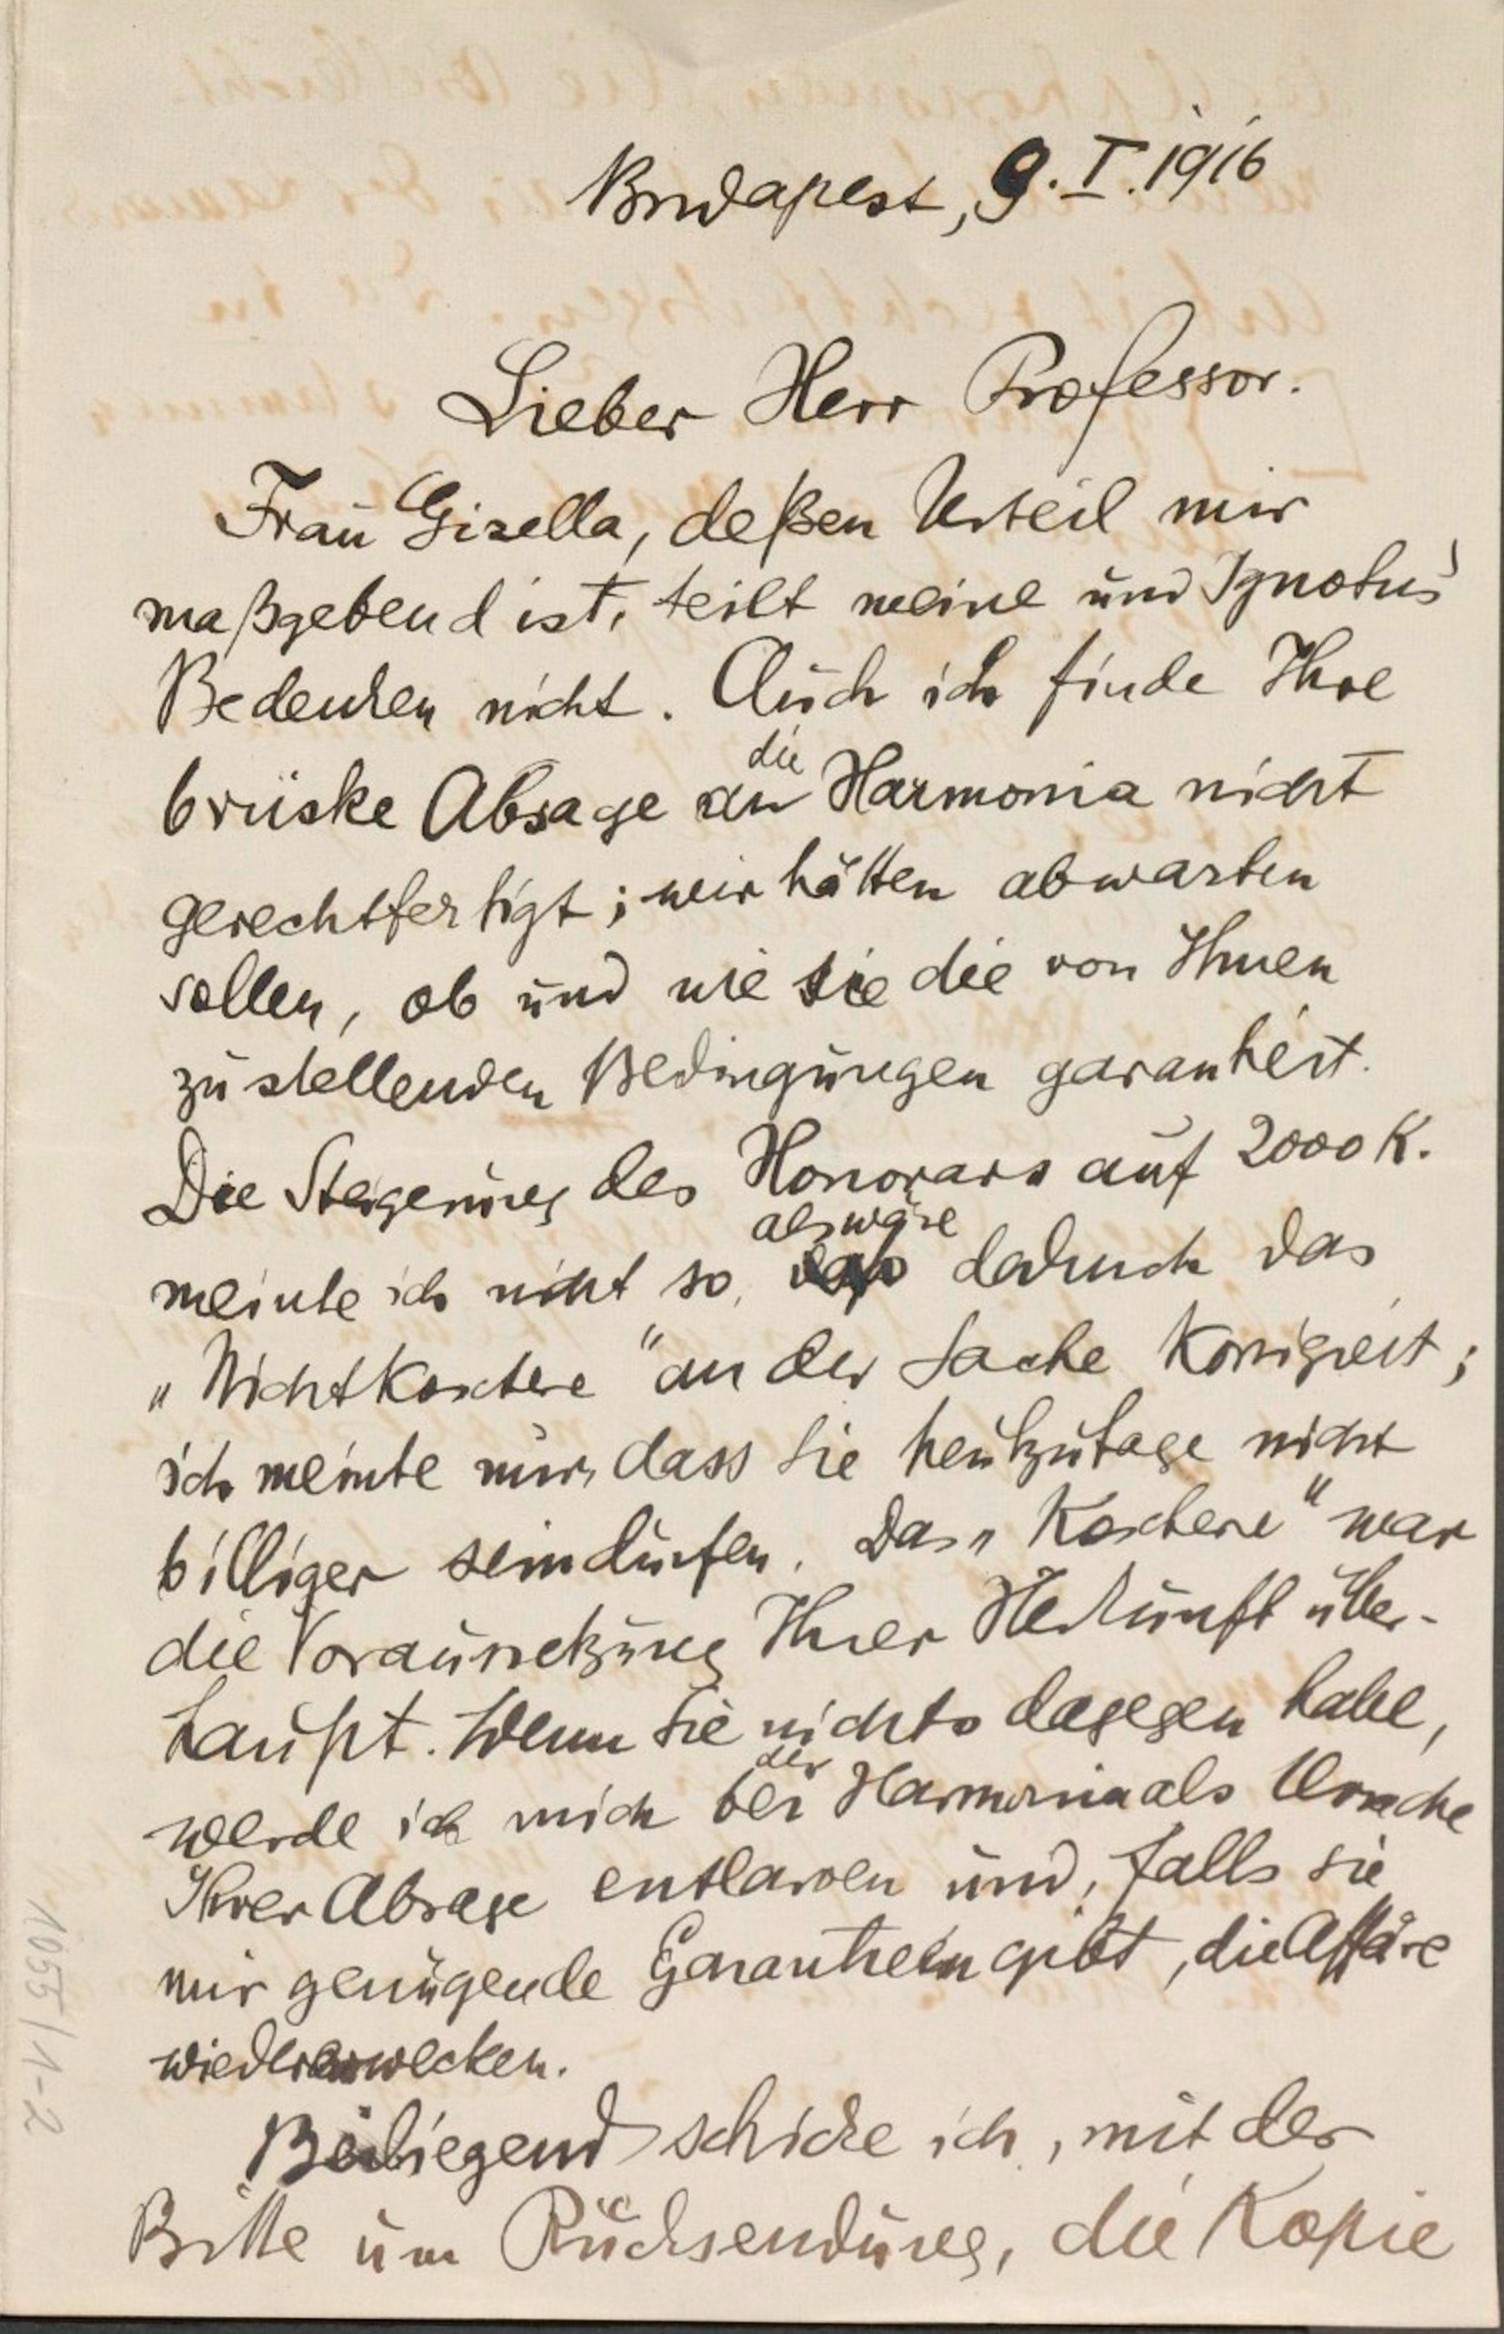 Budapest, 9. I. 1916
Lieber Herr Professor.
Frau Gizella, deßen Urteil mir
maßgebend ist, teilt meine und Ignotus'
Bedenken nicht. Auch ich finde Ihre
brüske Absage an die Harmonia nicht
gerechtfertigt; wir hätten abwarten
sollen, ob und wie sie die von Ihnen
zu stellenden Bedingungen garantiert.
Die Steigerung des Honorars auf 2000 K.
meinte ich nicht so, als wäre dadurch das
„Nichtkoschere" an der Sache korrigiert;
ich meinte nur, dass Sie heutzutage nicht
billiger sein dürfen. Das „Koschere" war
die Voraussetzung Ihrer Herkunft über-
haupt. Wenn Sie nichts dagegen habe,
werde ich mich bei der Harmonia als Ursache
Ihrer Absage entlarven und, falls sie
mir genügende Garantieen gibt, die Affäre
wiedererwecken.
Beiliegend schicke ich, mit der
Bitte um Rücksendung, die Kopie
1055/1-2